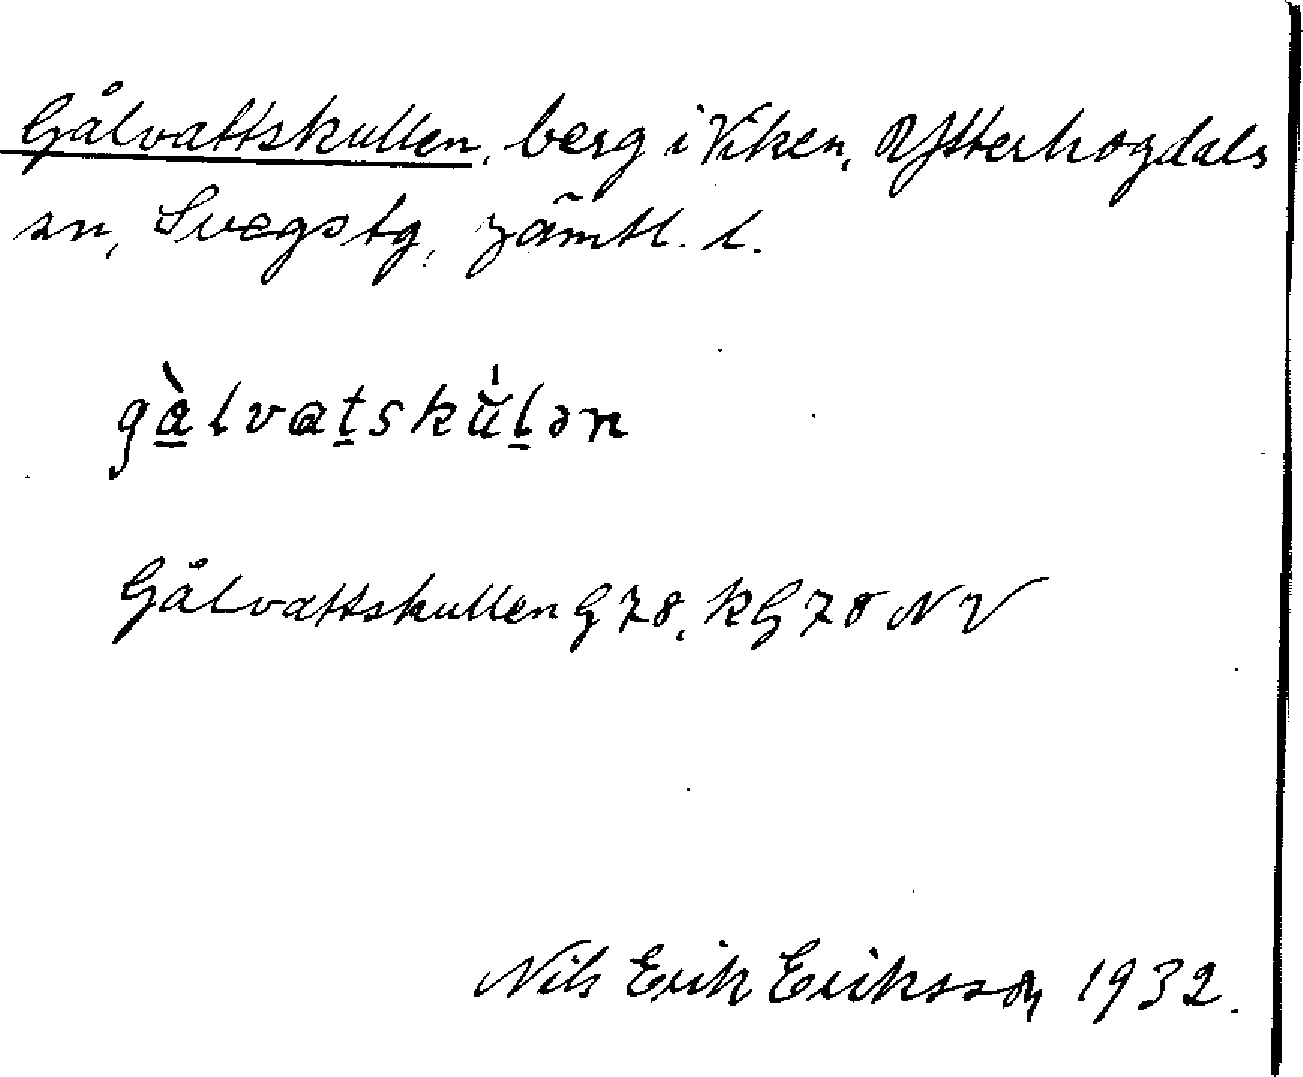 Gålvattskullen, berg i Viken, Ytterhogdals
sn, Svegs tg, Jämtl. l.
gàlvatskùlən
Gålvattskullen G 78, k G 78 NV
Nils Erik Eriksson 1932.